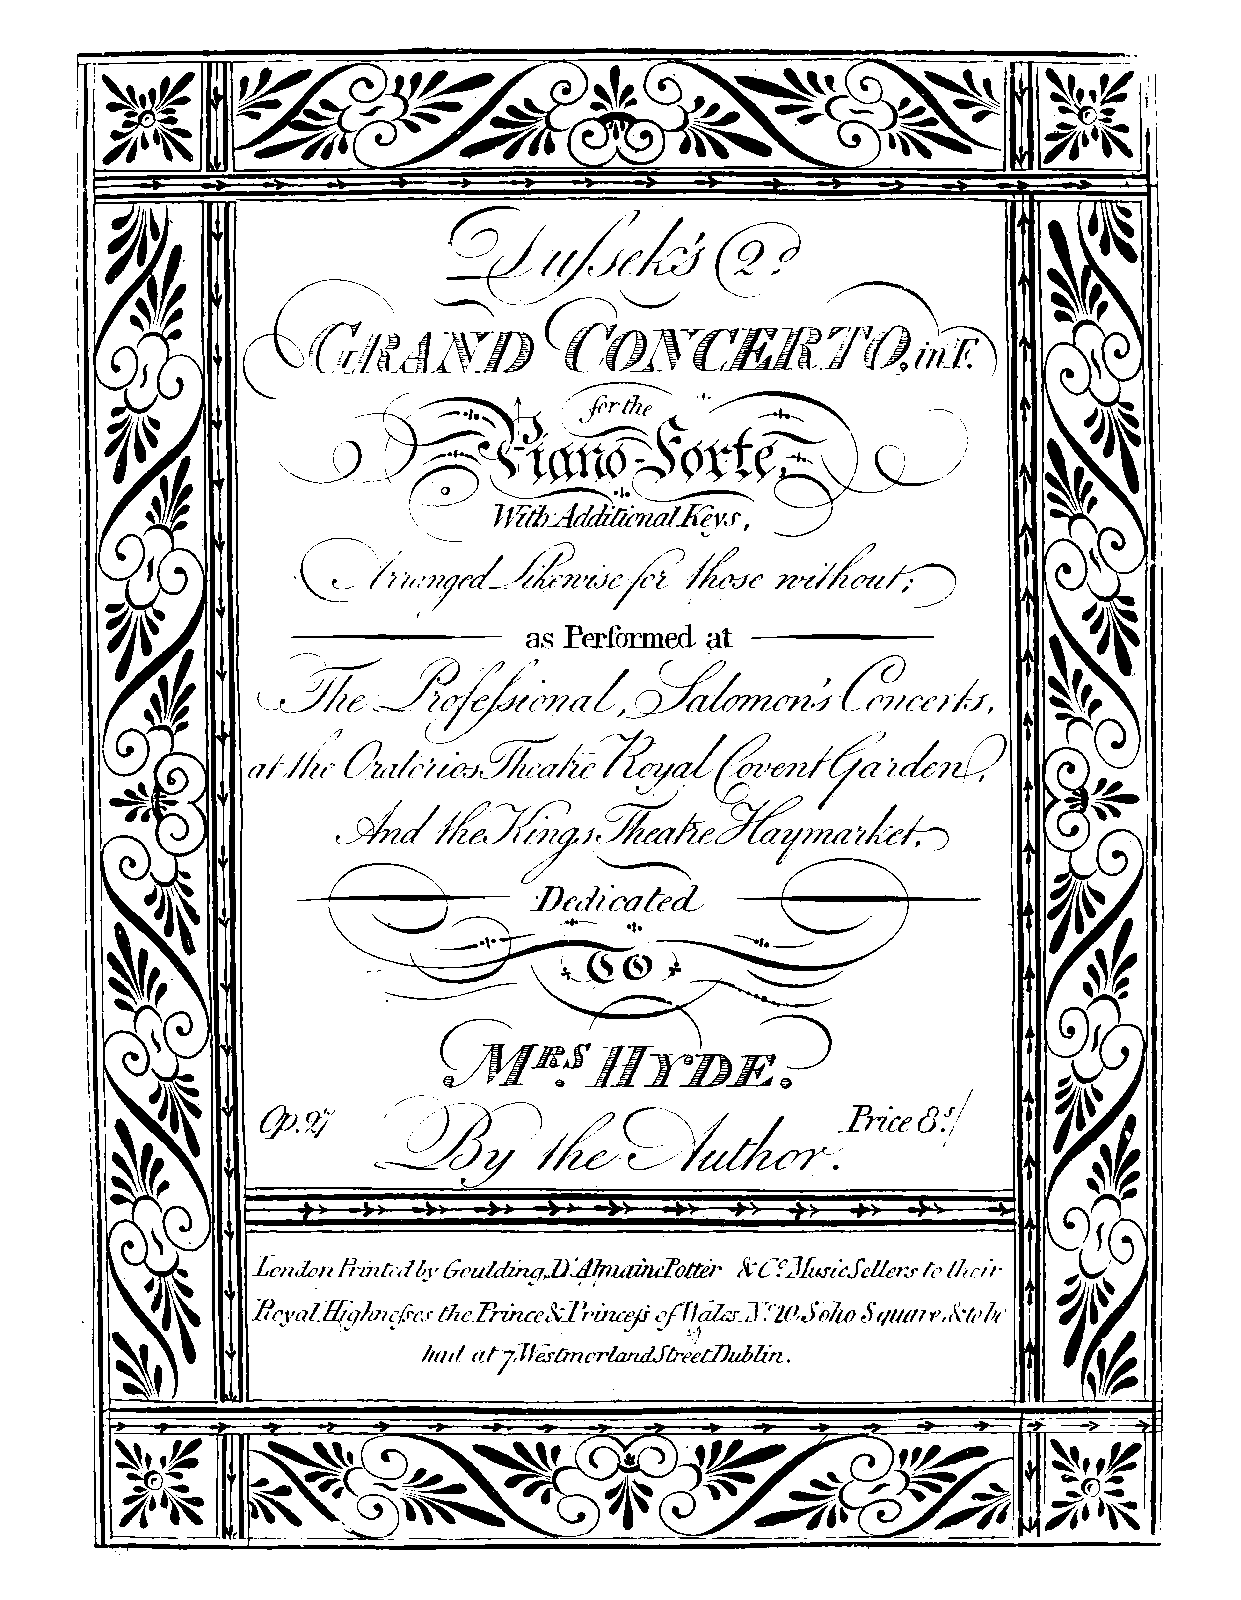 Duſsek's 2.d
GRAND CONCERTO, in F.
for the
Piano-Forte,
With Additional Keys,
Arranged Likewise for those without;
as Performed at
The Profeſsional, Salomon's Concerts,
at the Oratorios Theatre Royal Covent Garden,
And the Kings Theatre Haymarket.
Dedicated
TO
MRS. HYDE.
Op. 27
By the Author.
Price 8.s/
London Printed by Goulding, D'Almaine Potter & Co. Music Sellers to their
Royal Highneſses the Prince & Princeſs of Wales No. 20, Soho Square, & to be
had at 7, Westmorland Street Dublin.